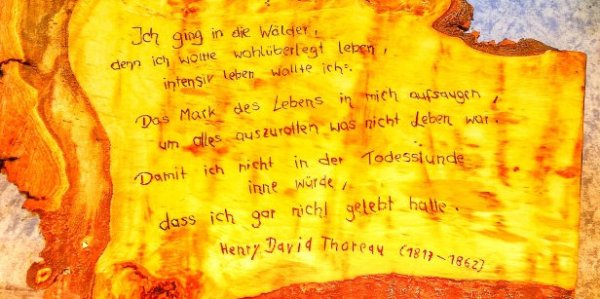 Ich ging in die Wälder,
denn ich wollte wohlüberlegt leben,
intensiv leben wollte ich.
Das Mark des Lebens in mich aufsaugen,
um alles auszurotten was nicht Leben war.
Damit ich nicht in der Todesstunde
inne würde,
dass ich gar nicht gelebt hatte.
Henry David Thoreau (1817-1862)